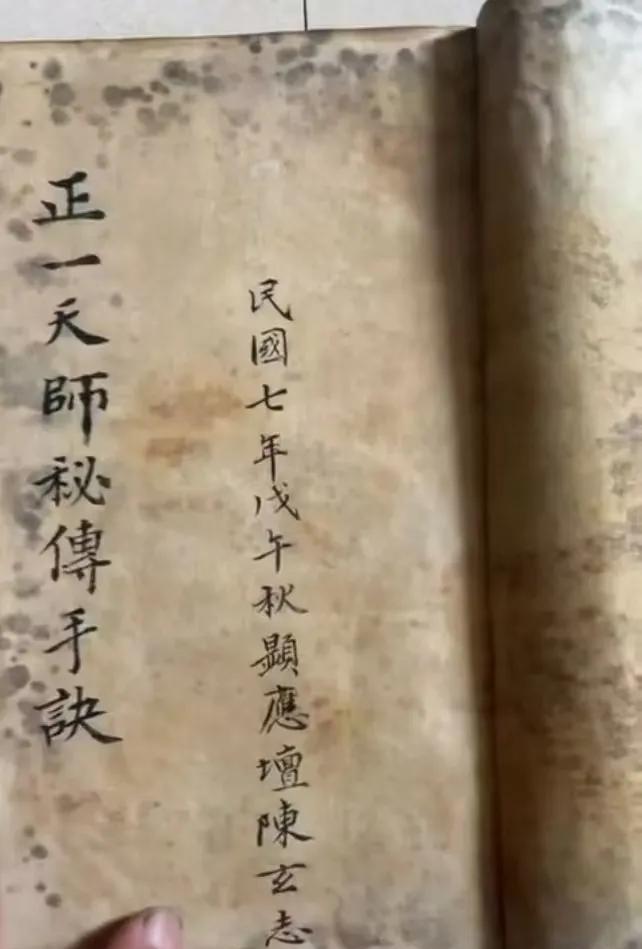 民國七年戊午秋顯應壇陳玄志
正一天師秘傳手訣